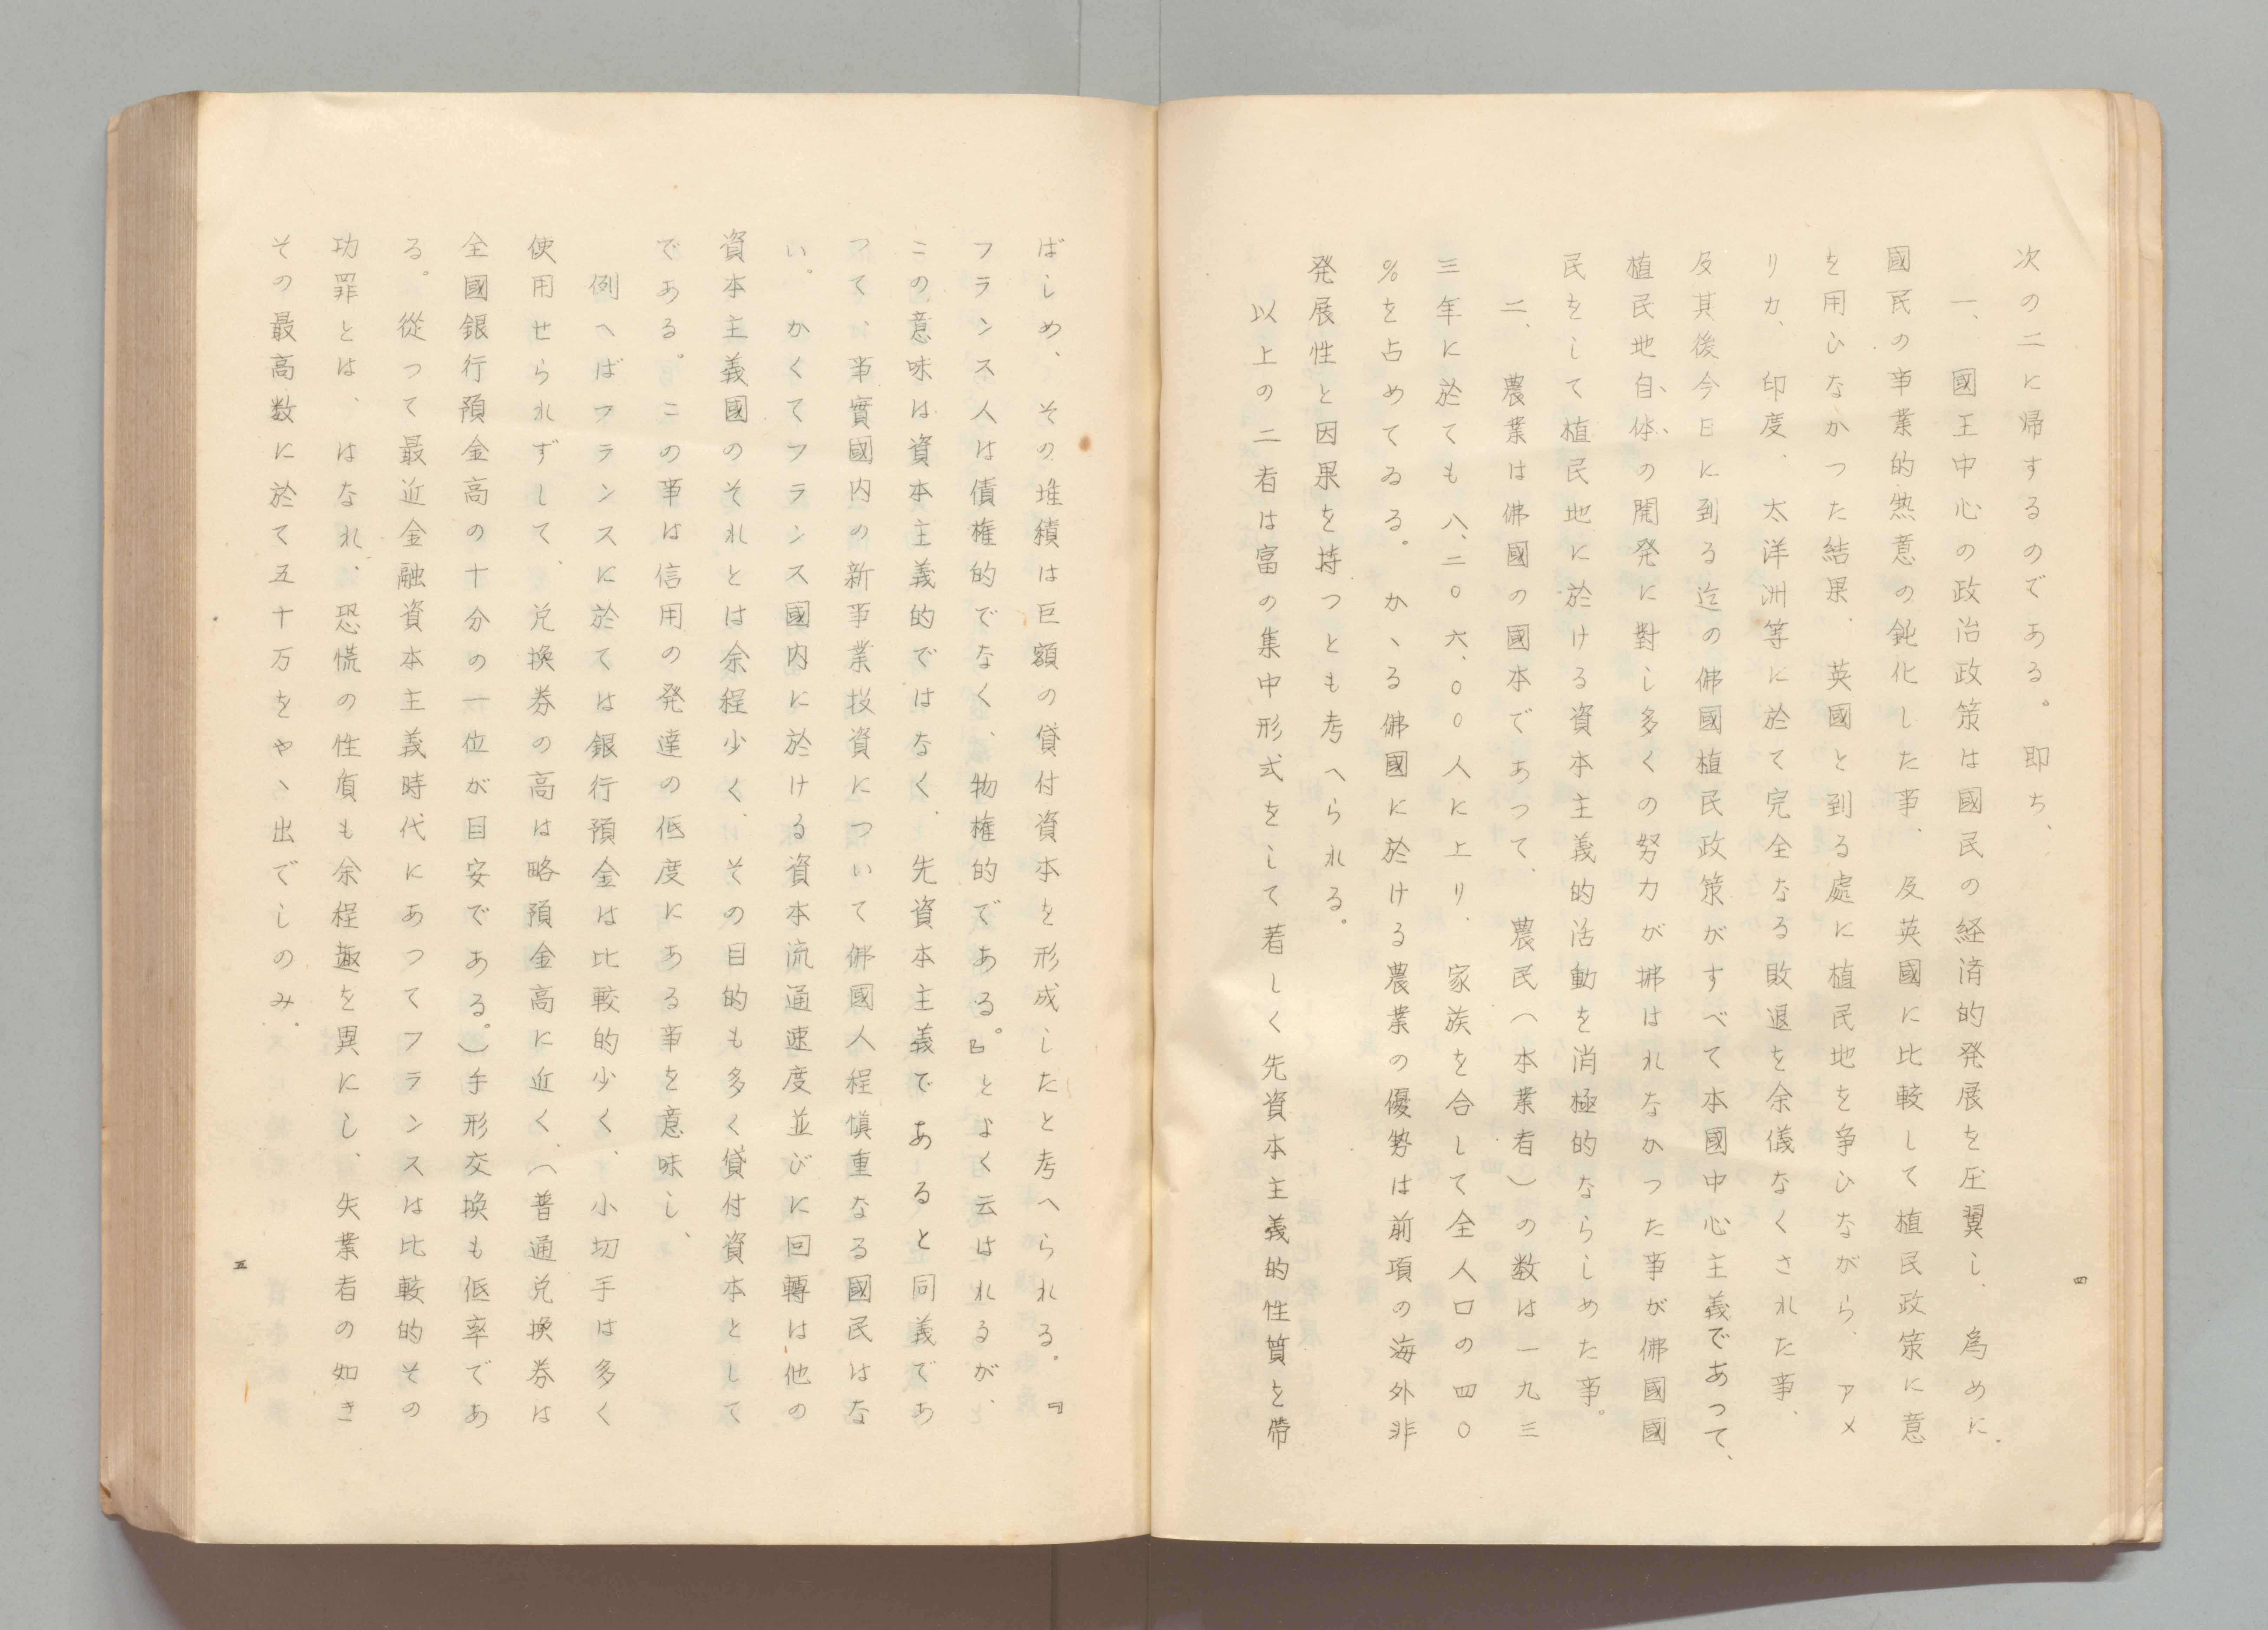 次の二に帰するのである。即ち、
一、國王中心の政治政策は國民の経済的発展を圧翼し、為めに
國民の事業的熱意の鈍化した事、及英國に比較して植民政策に意
を用ひなかつた結果、英國と到る處に植民地を争ひながら、アメ
リカ、印度、太洋洲等に於て完全なる敗退を余儀なくされた事、
及其後今日に到る迄の佛國植民政策がすべて本國中心主義であつて、
植民地自体の開発に對し多くの努力が拂はれなかつた事が佛國國
民をして植民地に於ける資本主義的活動を消極的ならしめた事。
二、農業は佛國の國本であつて、農民（本業者）の数は一九三
三年に於ても八、二〇六、〇〇〇人に上り、家族を合して全人口の四〇
％を占めてゐる。かゝる佛國に於ける農業の優勢は前項の海外非
発展性と因果を持つとも考へられる。
以上の二者は富の集中形式をして若しく先資本主義的性質を帶
四
ばしめ、その堆積は巨額の貸付資本を形成したと考へられる。『
フランス人は債権的でなく、物権的である。』とよく云はれるが、
この意味は資本主義的ではなく、先資本主義であると同義であ
つて、事實國内の新事業投資について佛國人程愼重なる國民はな
い。かくてフランス國内に於ける資本流通速度並びに回轉は他の
資本主義國のそれとは余程少く、その目的も多く貸付資本として
である。この事は信用の発達の低度にある事を意味し、
例へばフランスに於ては銀行預金は比較的少く、小切手は多く
使用せられずして、兌換券の高は略預金高に近く、（普通兌換券は
全國銀行預金高の十分の一位が目安である。）手形交換も低率であ
る。從つて最近金融資本主義時代にあつてフランスは比較的その
功罪とは、はなれ、恐慌の性質も余程趣を異にし、失業者の如き
その最高数に於て五十万をやゝ出でしのみ。
五